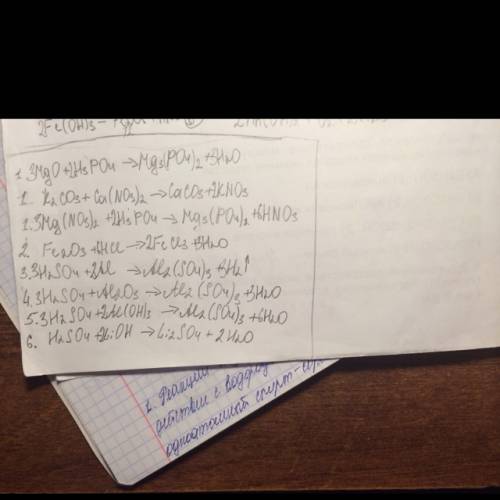 2Fe(OH)3 –
1. 3MgO + 2H3PO4 → Mg3(PO4)2 + 3H2O
1. K2CO3 + Ca(NO3)2 → CaCO3 + 2KNO3
1. 3Mg(NO3)2 + 2H3PO4 → Mg3(PO4)2 + 6HNO3
2. Fe2O3 + 6HCl → 2FeCl3 + 3H2O
3. 3H2SO4 + 2Al → Al2(SO4)3 + 3H2↑
4. 3H2SO4 + Al2O3 → Al2(SO4)3 + 3H2O
5. 3H2SO4 + 2Al(OH)3 → Al2(SO4)3 + 6H2O
6. H2SO4 + 2LiOH → Li2SO4 + 2H2O
2. Реакции
действии с водород
одноатомный спирт –